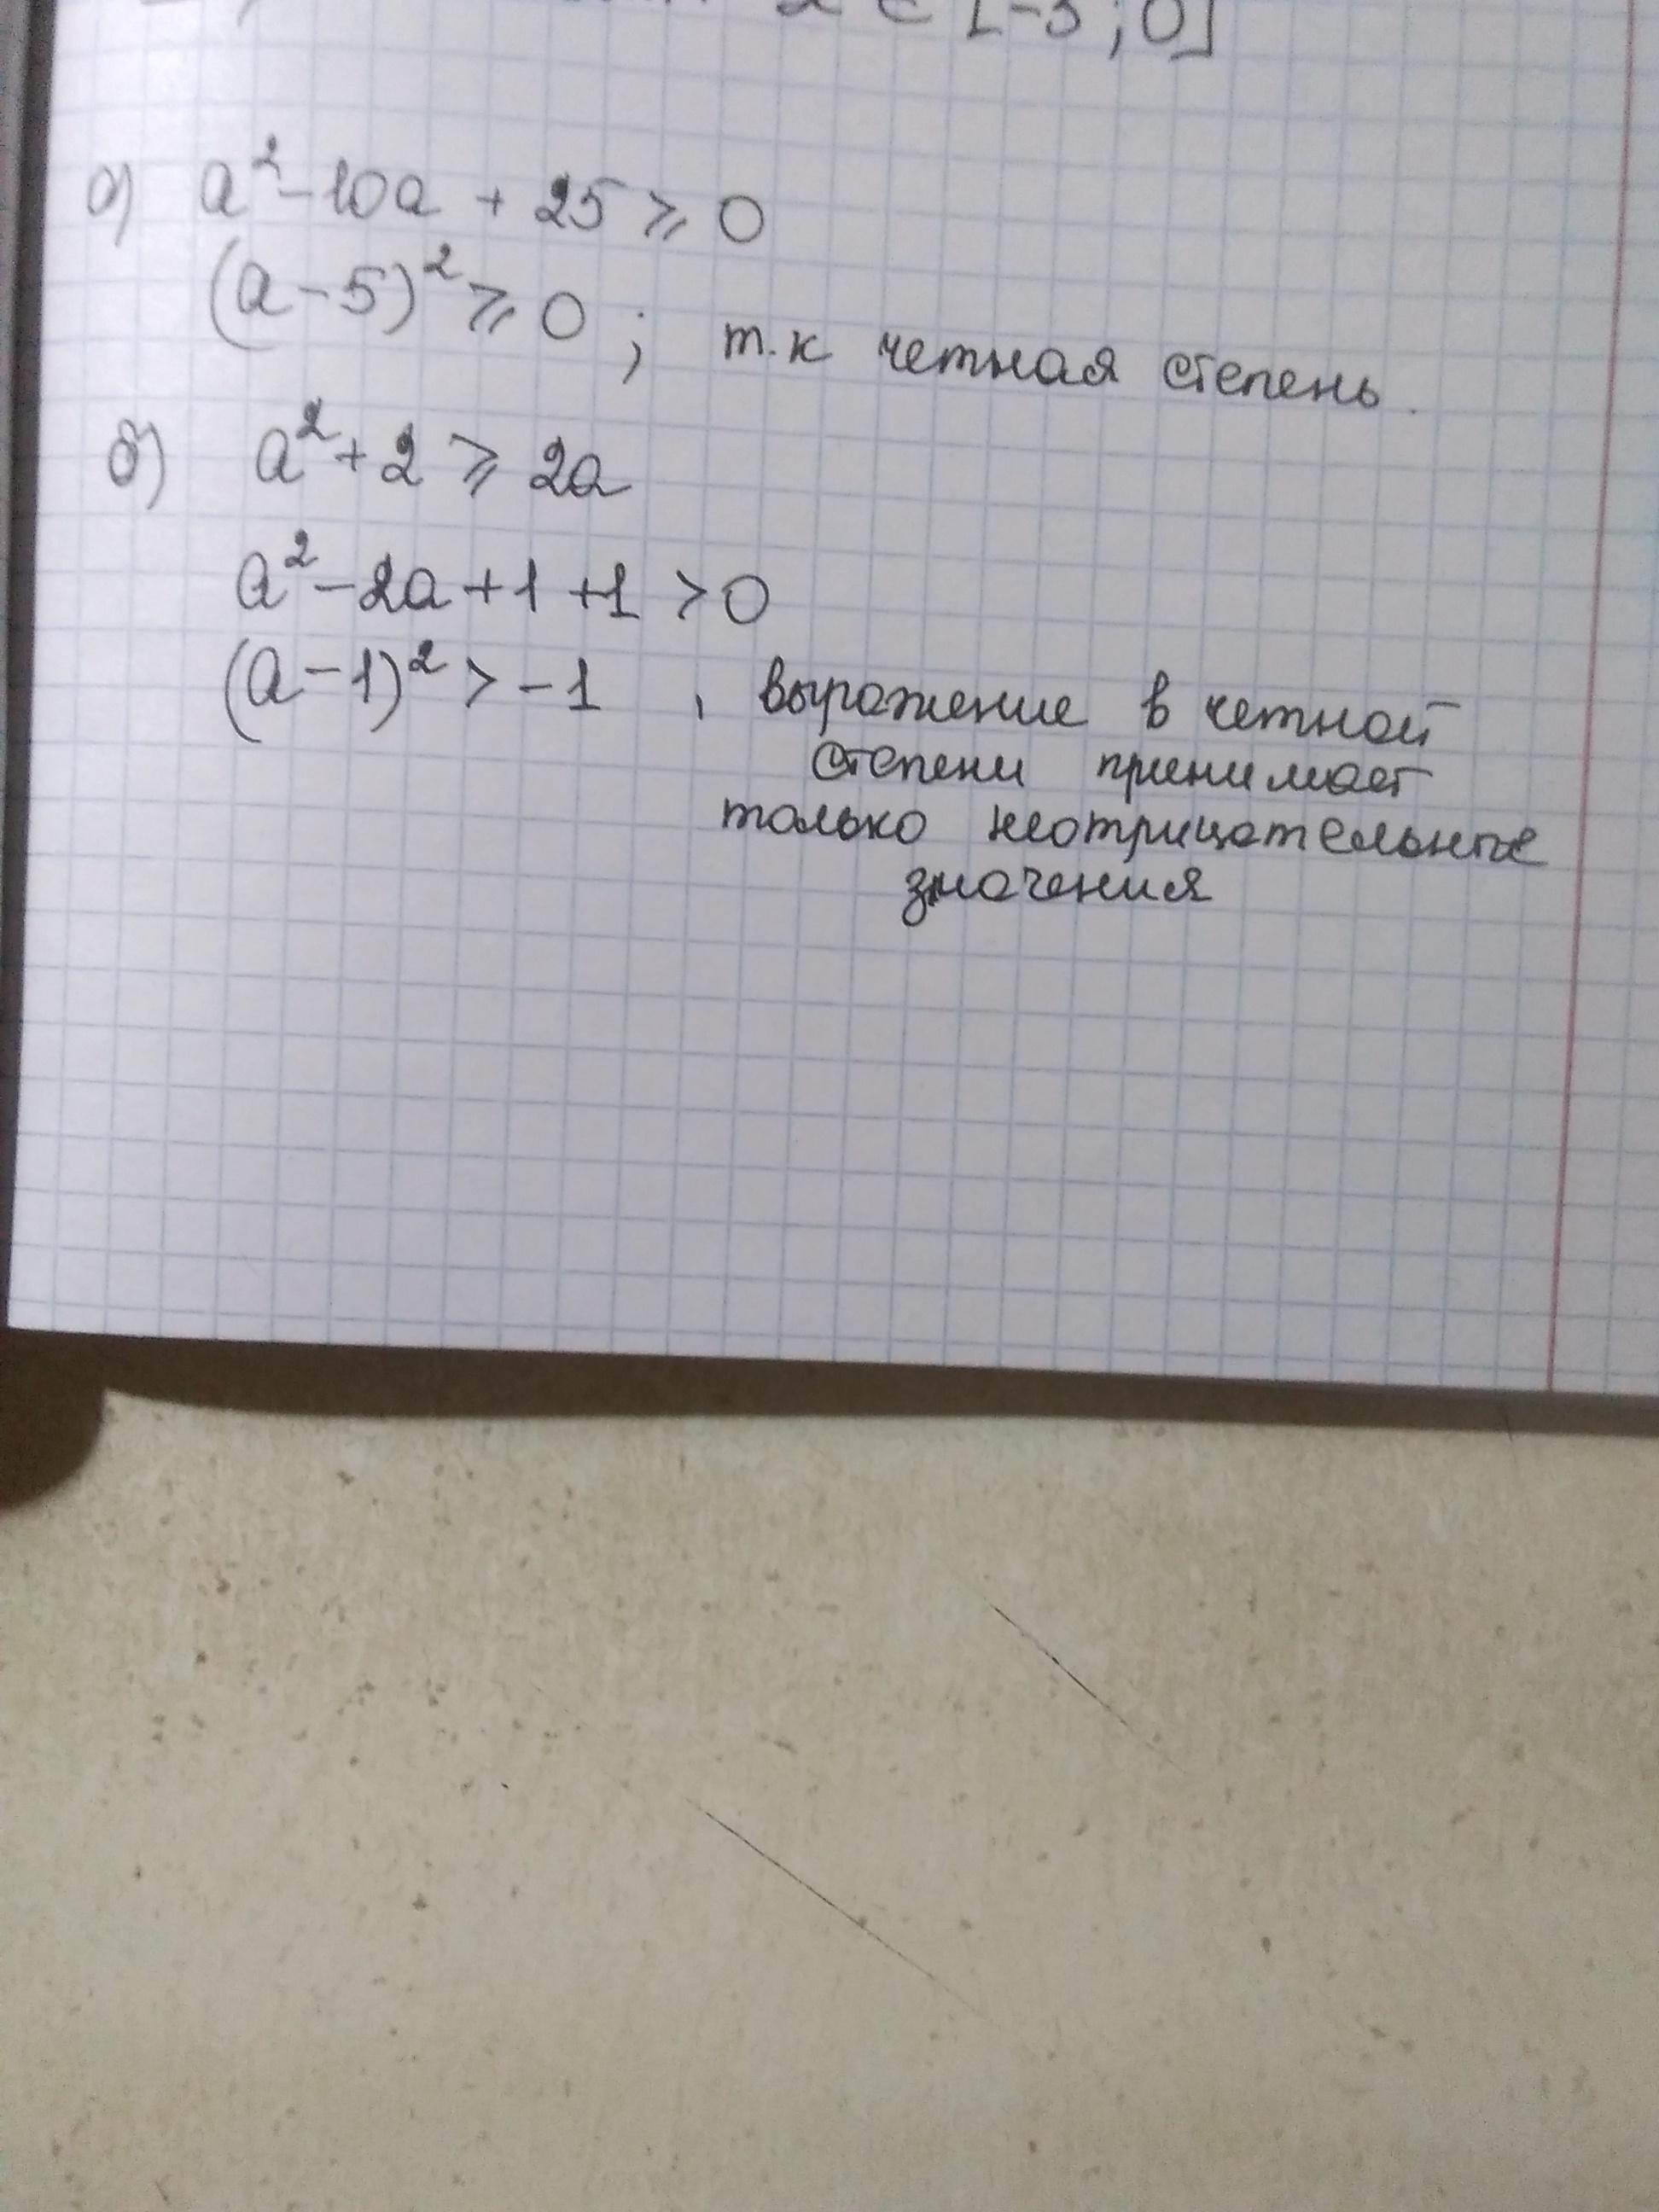 ∈ [-3;0]
а) a²-10a + 25 ⩾ 0
(a-5)² ⩾ 0 ; т.к четная степень.
б) a² + 2 ⩾ 2a
a² - 2a + 1 + 1 > 0
(a-1)² > -1 , выражение в четной
степени принимает
только неотрицательные
значения